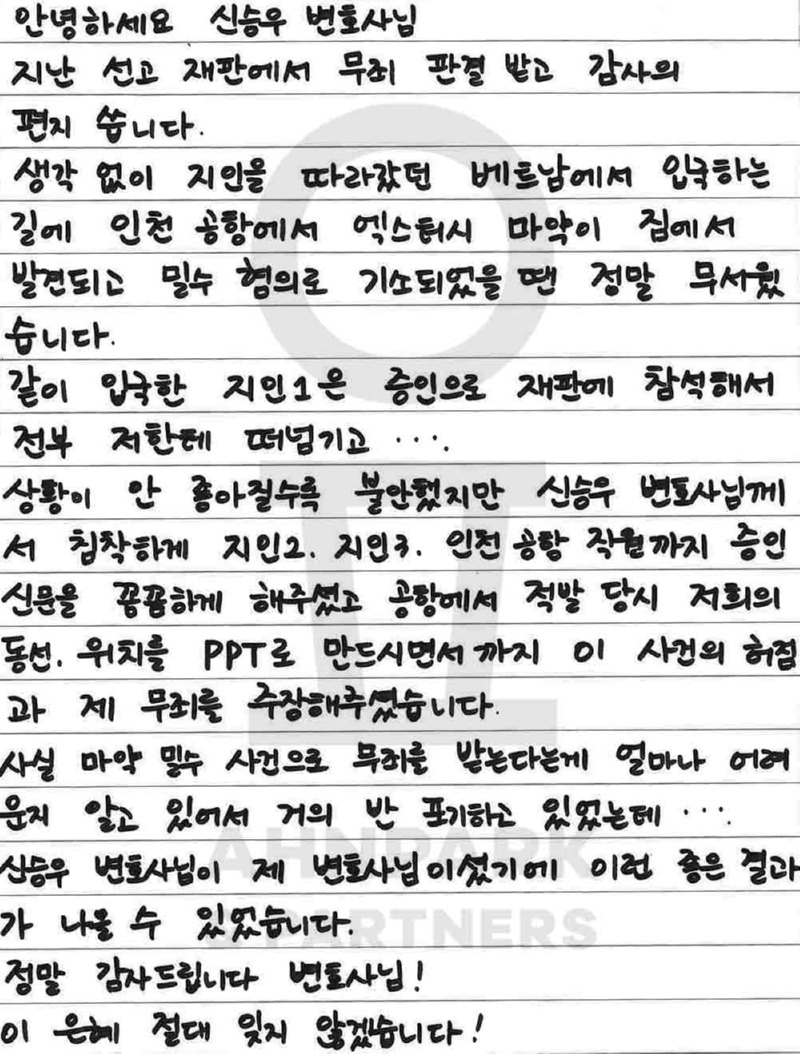 안녕하세요 신승우 변호사님
지난 선고 재판에서 무죄 판결 받고 감사의
편지 씁니다.
생각 없이 지인을 따라갔던 베트남에서 입국하는
길에 인천 공항에서 엑스터시 마약이 짐에서
발견되고 밀수 혐의로 기소되었을 땐 정말 무서웠
습니다.
같이 입국한 지인1은 증인으로 재판에 참석해서
전부 저한테 떠넘기고 ···.
상황이 안 좋아질수록 불안했지만 신승우 변호사님께
서 침착하게 지인2. 지인3. 인천 공항 직원까지 증인
신문을 꼼꼼하게 해주셨고 공항에서 적발 당시 저희의
동선. 위치를 PPT로 만드시면서까지 이 사건의 허점
과 제 무죄를 주장해주셨습니다.
사실 마약 밀수 사건으로 무죄를 받는다는게 얼마나 어려
운지 알고 있어서 거의 반 포기하고 있었는데 ···.
신승우 변호사님이 제 변호사님이셨기에 이런 좋은 결과
가 나올 수 있었습니다.
정말 감사드립니다 변호사님!
이 은혜 절대 잊지 않겠습니다!
AHNPARK
& PARTNERS